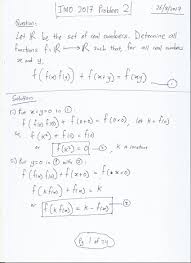 IMO 2017 Problem 2
Question:
Let ℝ be the set of real numbers. Determine all
functions f: ℝ → ℝ such that, for all real numbers
x and y,
f(f(x)f(y)) + f(x+y) = f(xy) ①
Solution
For x=y=0 in ①:
f(f(0)f(0)) + f(0+0) = f(0·0), let k = f(0)
f(k²) + f(0) = f(0)
or f(k²) = 0 ②
k a constant
For y=0 in ① with ②:
f(f(x)f(0)) + f(x+0) = f(x·0)
f(k f(x)) + f(x) = k
or f(k f(x)) = k - f(x) ③
Pg 1 of